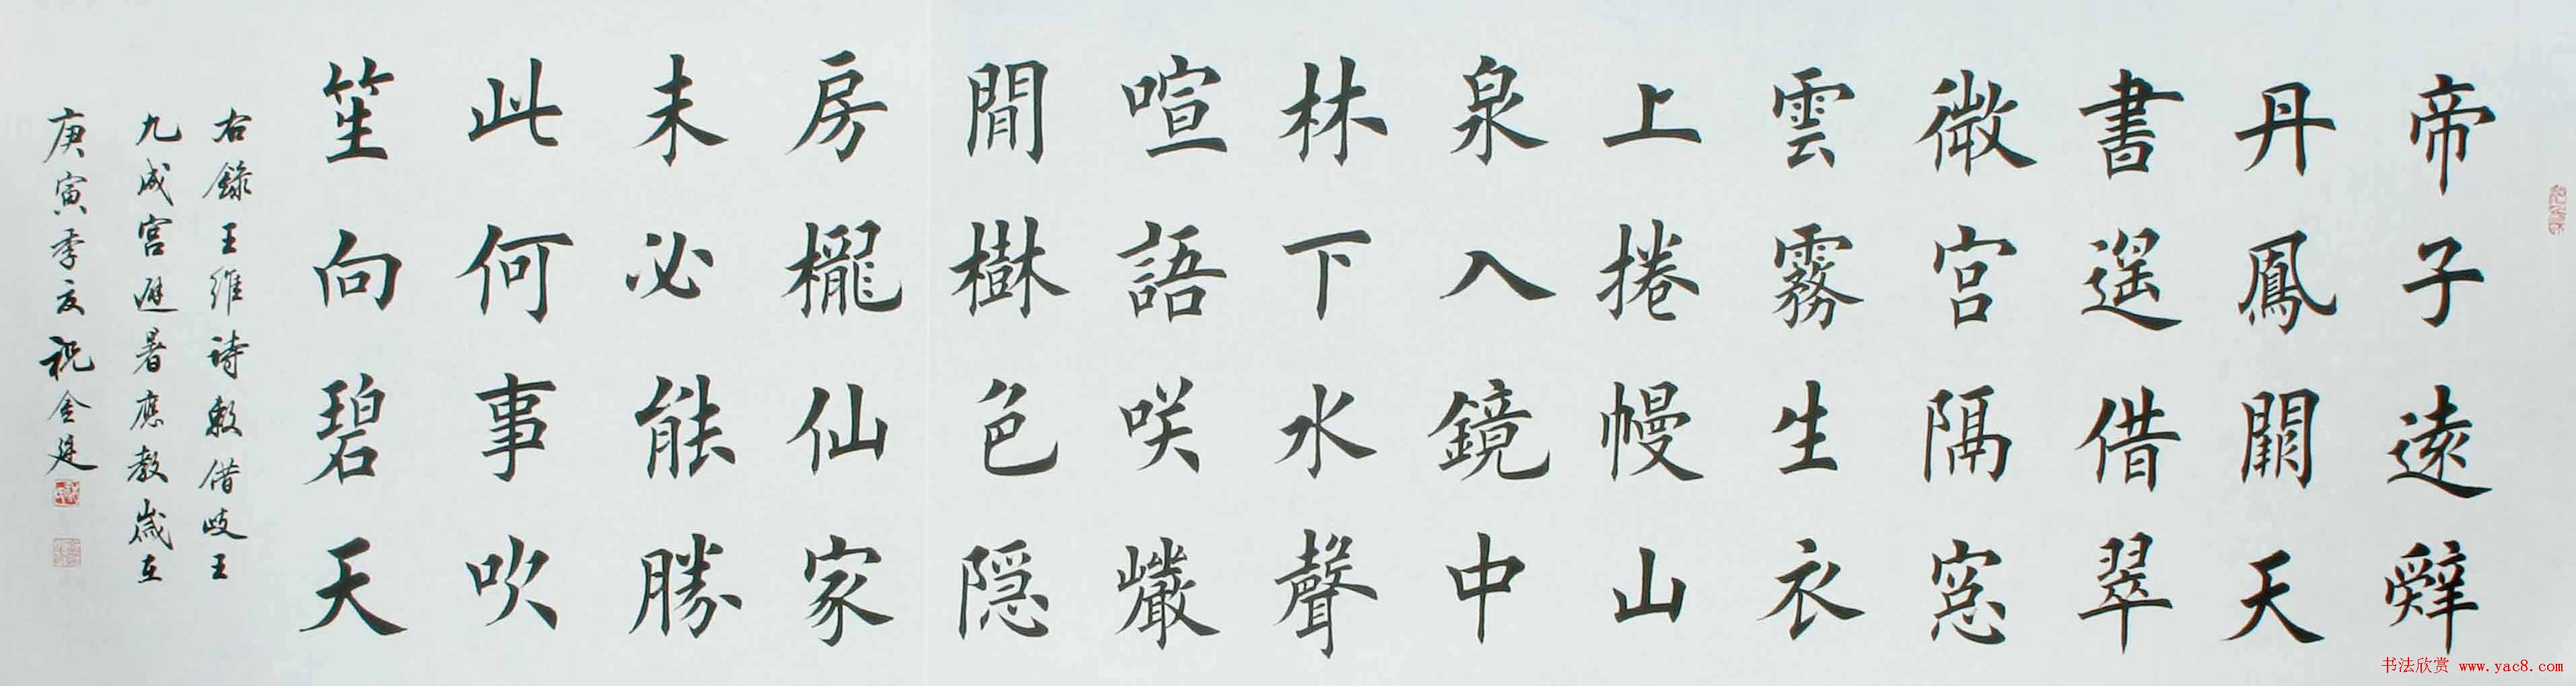 帝子遠辭
丹鳳闕天
書遥借翠
微宫隔窓
雲霧生衣
上捲幔山
泉入鏡中
林下水聲
喧語咲巖
閒樹色隐
房櫳仙家
未必能勝
此何事吹
笙向碧天
右錄王維诗敕借岐王
九成宫避暑應教歲在
庚寅季夏祝金
书法欣赏 www.yac8.com